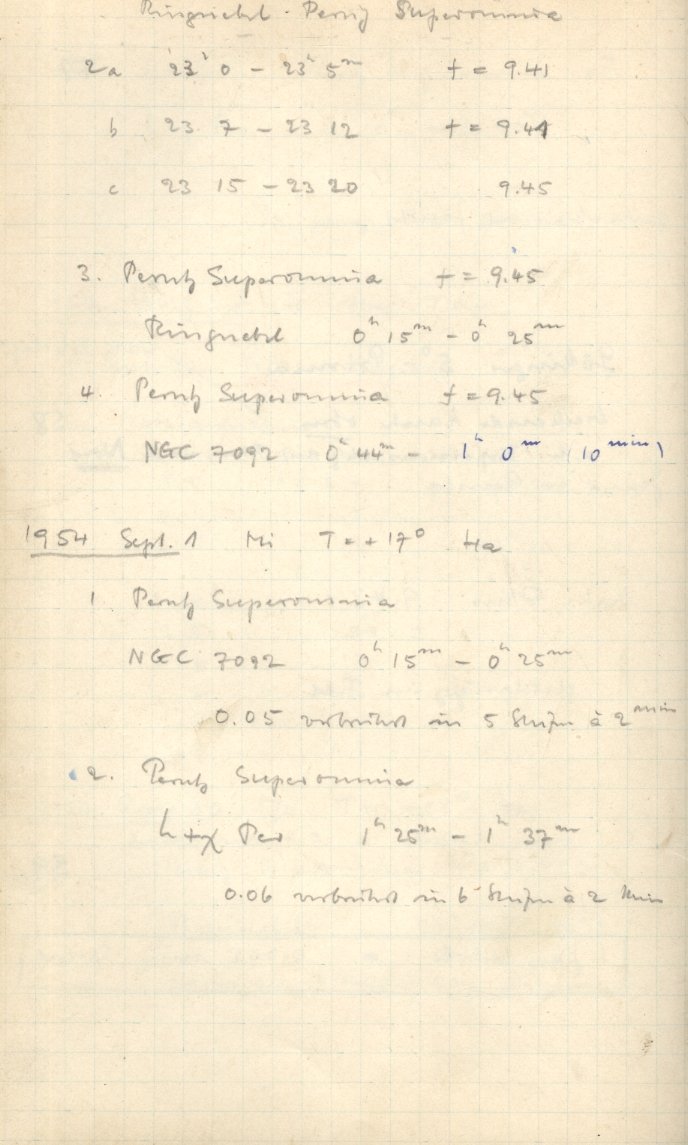 Ringnebel. Perutz Superomnia
2a 23ʰ 0 – 23ʰ 5ᵐ f = 9.41
b 23 7 – 23 12 f = 9.41
c 23 15 – 23 20 9.45
3. Perutz Superomnia f = 9.45
Ringnebel 0ʰ 15ᵐ – 0ʰ 25ᵐ
4. Perutz Superomnia f = 9.45
NGC 7092 0ʰ 44ᵐ – 1ʰ 0ᵐ (10 min)
1954 Sept. 1 Mi T = +17° Ha
1. Perutz Superomnia
NGC 7092 0ʰ 15ᵐ – 0ʰ 25ᵐ
0.05 verbreitert in 5 Stufen à 2 min
2. Perutz Superomnia
h + χ Per 1ʰ 25ᵐ – 1ʰ 37ᵐ
0.06 verbreitert in 6 Stufen à 2 min